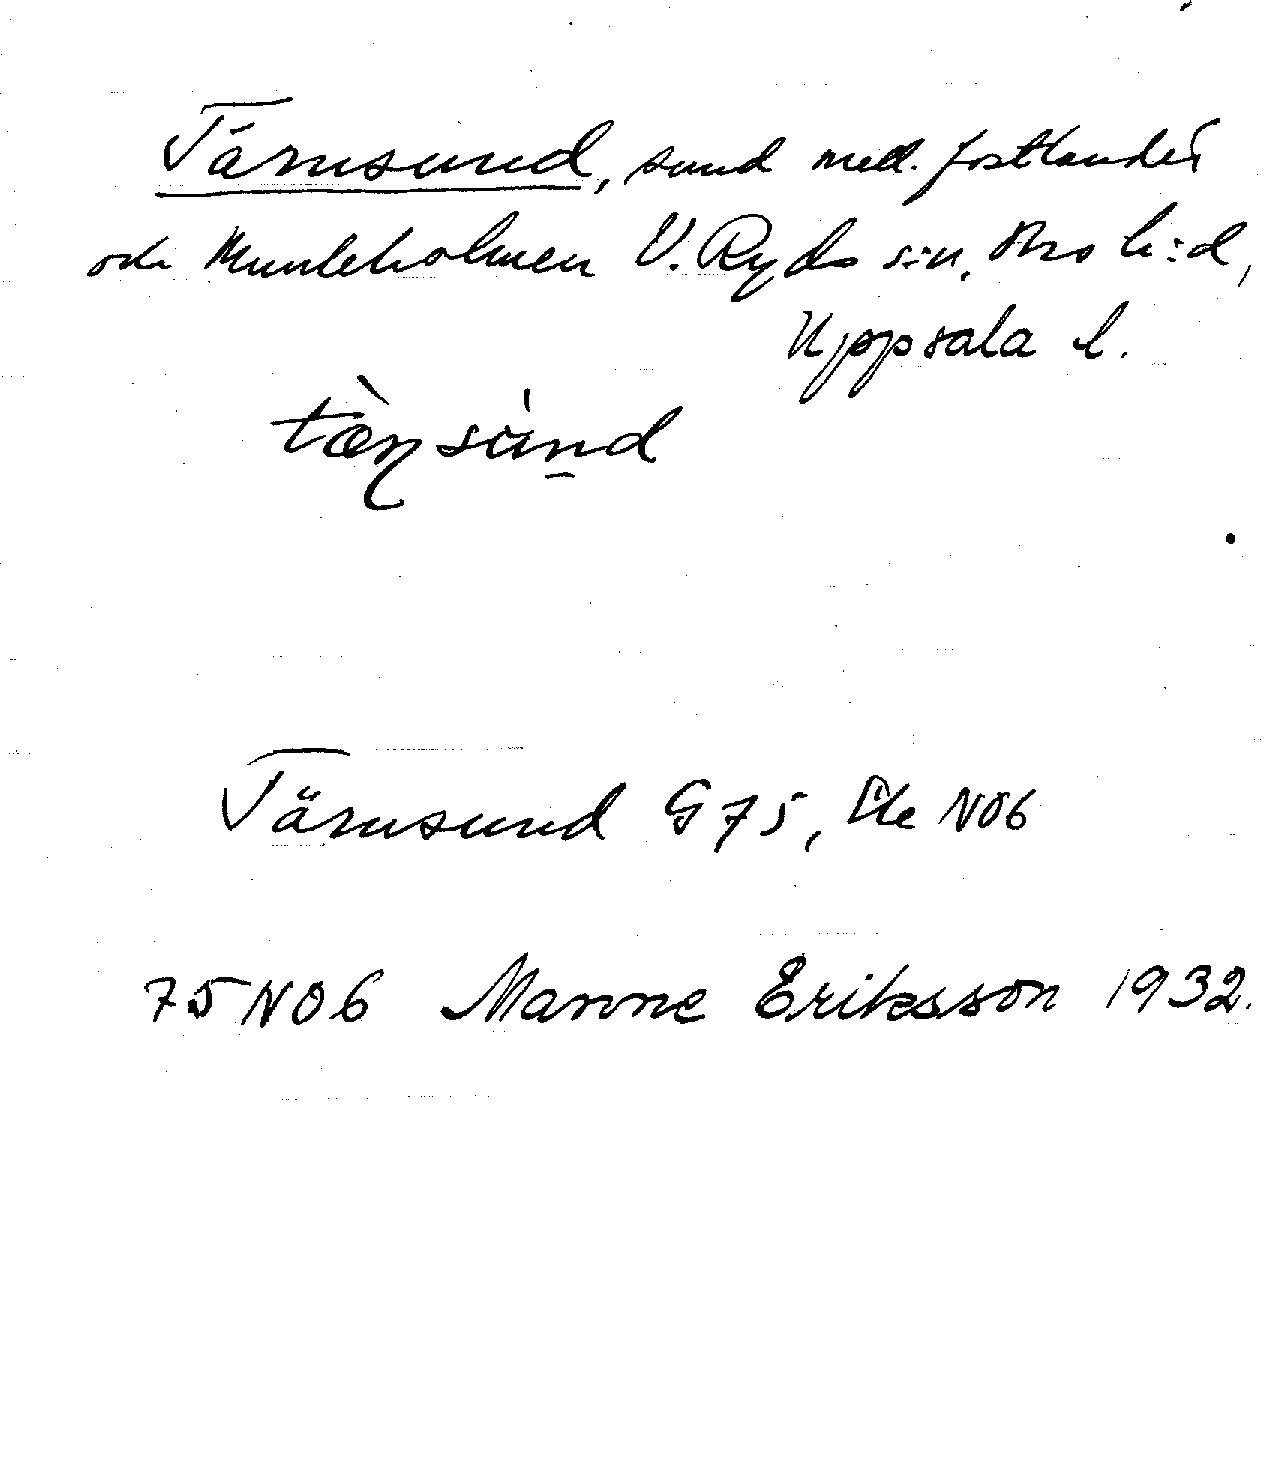 Tärnsund, sund mell. fastlandet
och Munkholmen V. Ryds s:n, Bro h:d,
Uppsala l.
tæ̀ɳsùnd
Tärnsund G 75, Ek NO6
75 NO6 Manne Eriksson 1932.